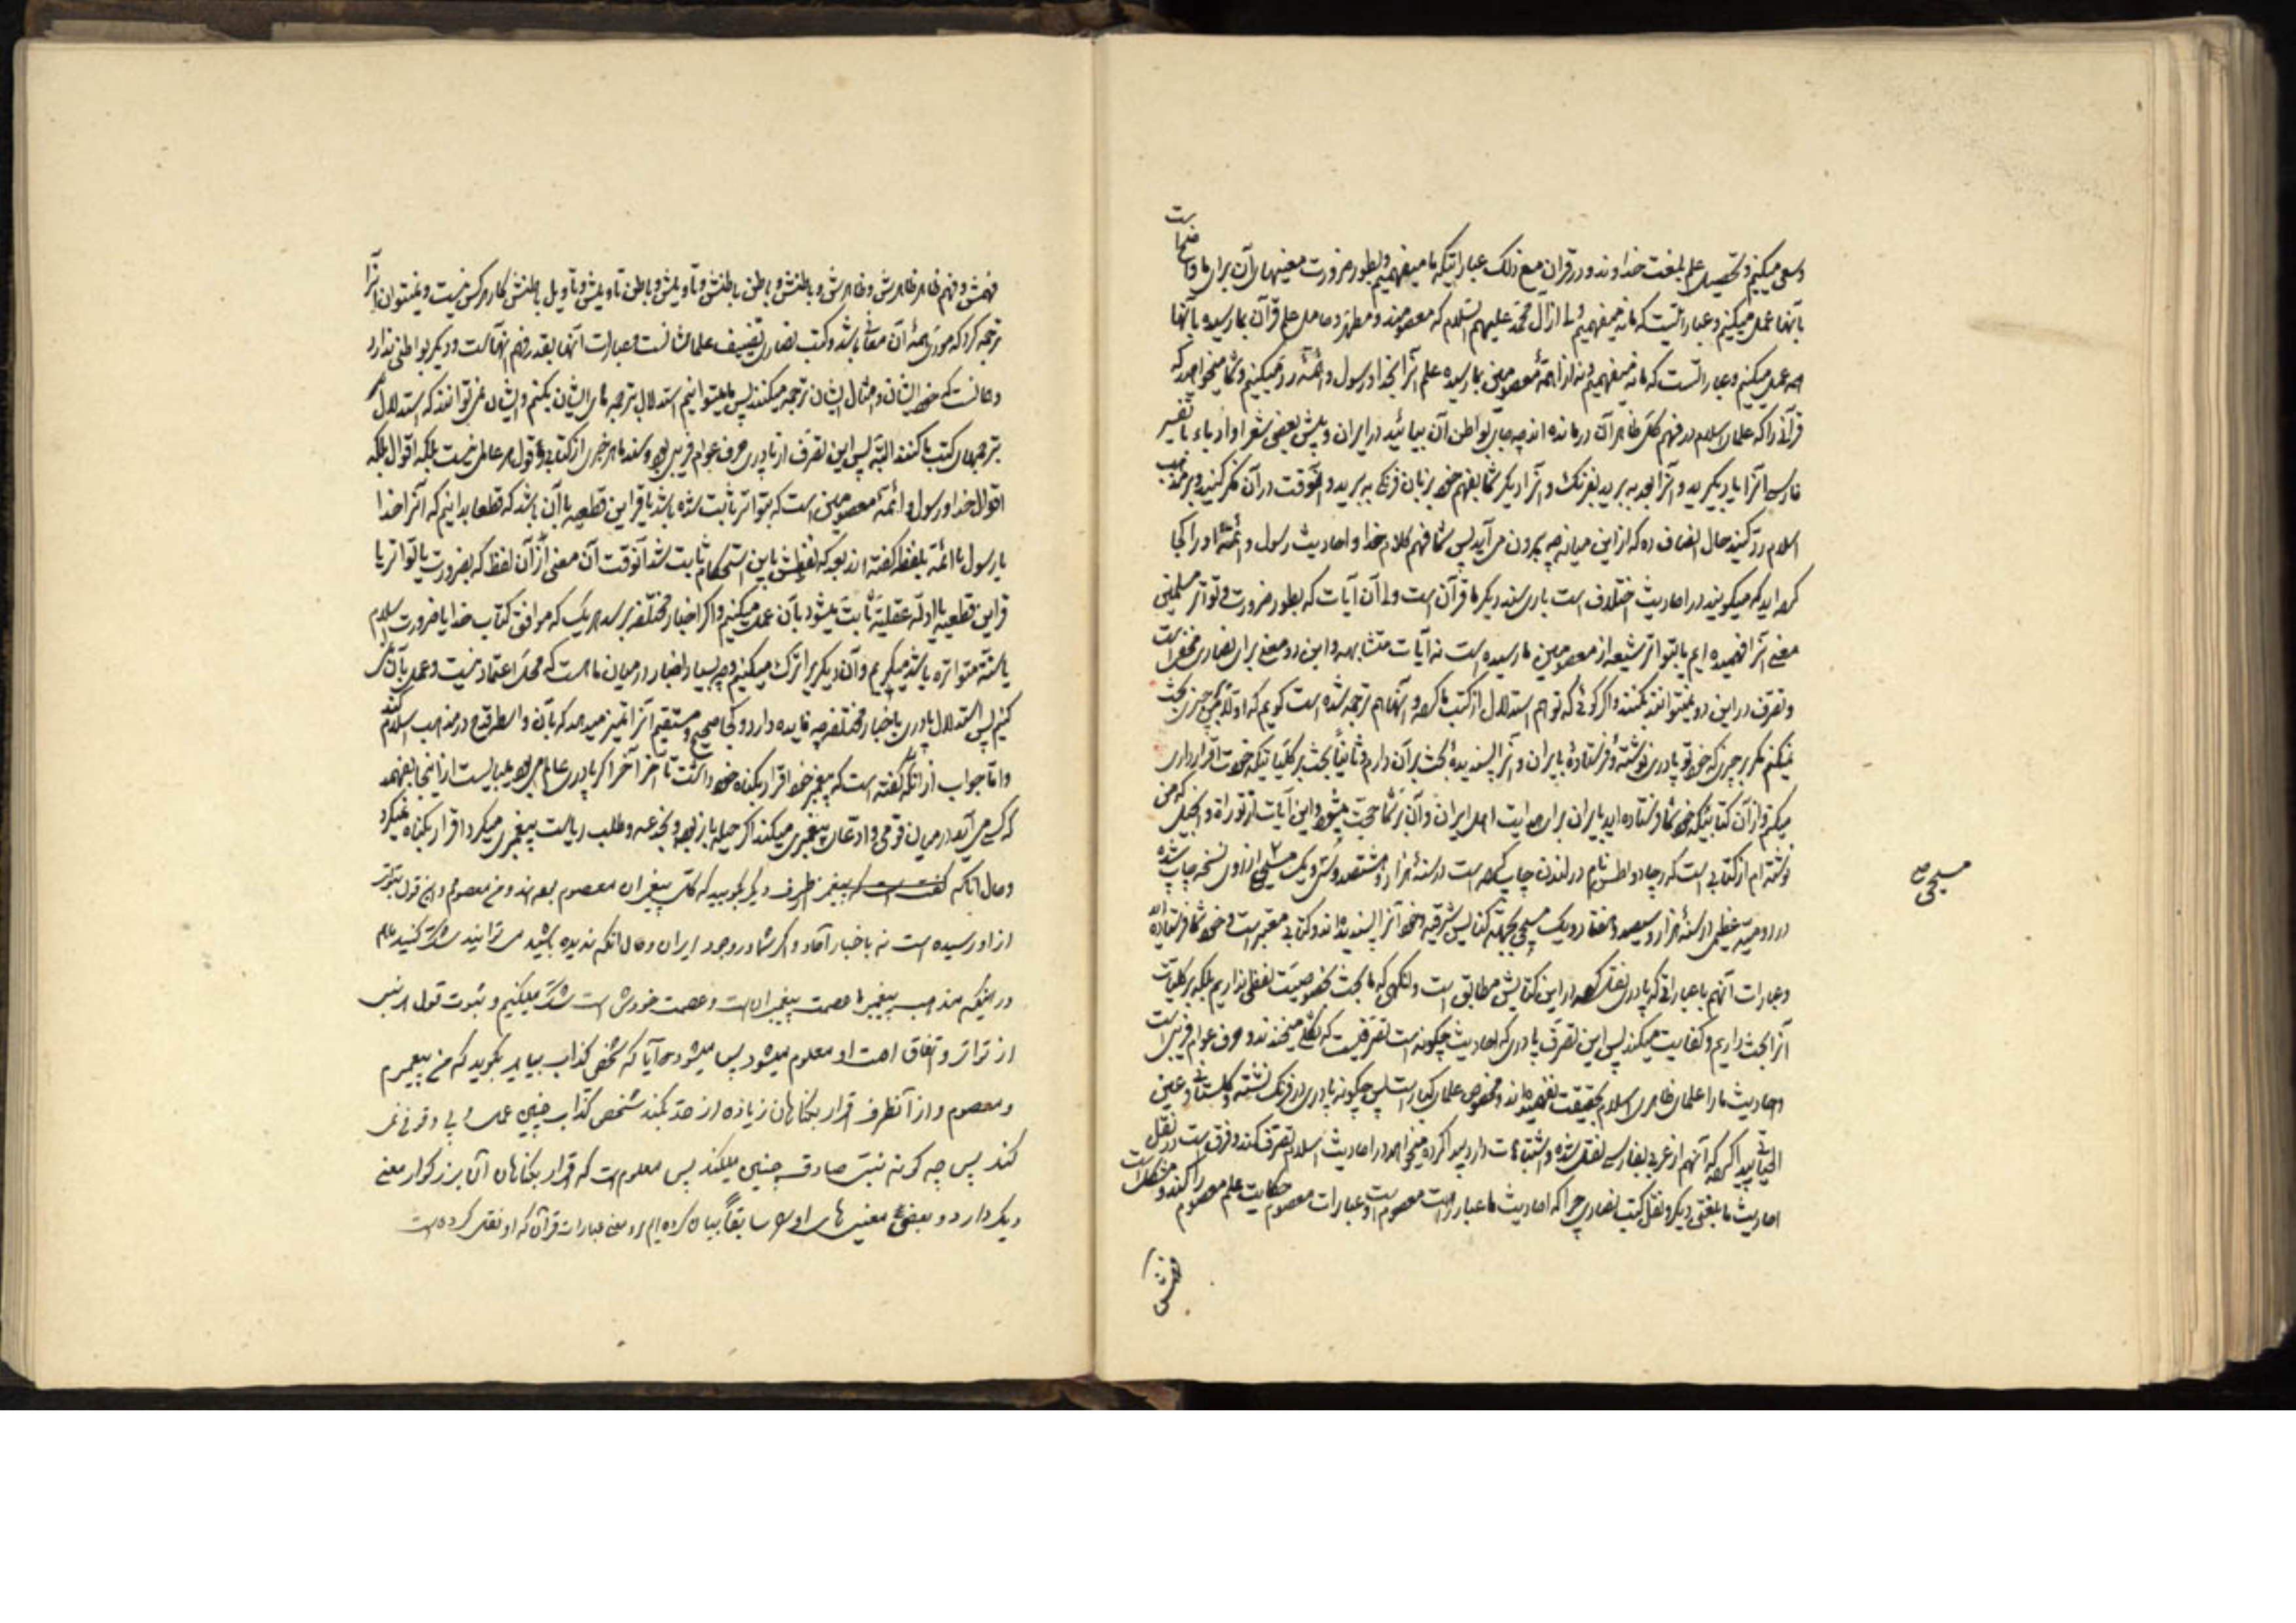 وسعی میکنیم و تحصیل علم بلغت خداوند و در قرآن مع ذلک عباراتیکه ما میفهمیم و بطور ضرورت معنیهای آن برای ما واضح است
بآنها عمل میکنیم و عباراتیست که ما نمیفهمیم ولی از آل محمد علیهم السلام که معصومند و مطهر و حامل علم قرآن بما رسیده بآنها
هم عمل میکنیم و عباراتیست که ما نمیفهمیم و نه از ائمه معصومین بما رسیده علم آنرا بخدا و رسول و ائمه رد میکنیم و شما میخواهید که
قرآنی را که علمای اسلام در فهم کل ظاهر آن درمانده اند چه جای بواطن آن بیائید در ایران و پیش بعضی شعرا و ادباء یا تفسیر
فارسی آنرا یاد بگیرید و آنرا بعد ببرید بفرنگ و آنرا دیگر شما بفهم خود بزبان فرنگی ببرید و آنوقت در آن فکر کنید و بر مذهب
اسلام رد کنید حال انصاف ده که از این میانه چه بیرون می آید پس شما فهم کلام خدا و احادیث رسول و ائمه او را کجا
کرده اید که میگویید در احادیث اختلاف است باری سند دیگر ما قرآن است ولی آن آیات که بطور ضرورت و تواتر مسلمین
معنی آنرا فهمیده ایم یا بتواتر شیعه از معصومین بما رسیده است نه آیات متشابهه و این دو معنی برای نصاری مخفی است
و تصرف در این دو نمیتوانند بکنند و اگر گوئی که تو هم استدلال از کتب ما کرده و آنها هم ترجمه شده است گویم که اولا من بر چیزی بحث
نمیکنم مگر بر چیزی که خود تو پادری نوشته و فرستاده بایران و آنرا پسندیده بحث بر آن دارم و ثانیا بحث بر کلیاتیکه خودت اقرار داری
میکنم و از آن کتابیکه خود شما فرستاده اید بایران برای هدایت اهل ایران و آن بر شما حجت میشود و این آیات از توراة و انجیل که من
نوشته ام از کتابی است که رچارد واطس نام در لندن چاپ کرده است در سنه هزار و هشتصد و سی و یک مسیحی از روی نسخه چاپ شده
مسیحی صح
در رومیه عظمی در سنه هزار و سیصد و هفتاد و یک مسیحی بجهة کنایس شرقیه و خود آنرا پسندیده اند و کتابی معتبر است و خود شما فرستاده اید
و عبارات آنهم با عباراتی که پادری نقل کرده در این کتابش مطابق است وانگهی که ما بحث بخصوصیت لفظی نداریم بلکه بر کلیات
آنرا بحث داریم و کفایت میکند پس این تصرف پادری که احادیث چگونه است تصرفیست که میخندند و حرف عوام فریبی است
و احادیث ما را علمای ظاهری اسلام بحقیقت نفهمیده اند و مخصوص علمای کبار است پس چگونه پادری در فرنگ نشسته و گلستانی و عین
الحیاتی پیدا کرده که آنهم از عربی بفارسی نقل شده و اشتباهات دارد پیدا کرده میخواهد در احادیث اسلام تصرف کند و فرق است در نقل
احادیث ما بلغتی دیگر و نقل کتب نصاری چرا که احادیث ما عبارات معصوم است و عبارات معصوم حکایت علم معصوم را کند و مشکل است
فهمش
فهمش و فهم ظاهر ظاهرش و ظاهرش و باطنش و باطن باطنش و تأویلش و باطن تأویلش و تأویل باطنش کار هر کس نیست و نمیتوان آنرا
ترجمه کرد که مودی همه آن معانی باشد و کتب نصاری تصنیف علماشان است و عبارات آنها بقدر فهم آنهاست و دیگر بواطنی ندارد
و همانست که خود ایشان و امثال ایشان ترجمه میکنند پس ما میتوانیم استدلال بترجمه های ایشان بکنیم و ایشان نمی توانند که استدلال
بترجمهای کتب ما کنند البته پس این تصرف از پادری حرف عوام فریبی بود و سند ما هر خبری از کتابی و قول هر عالمی نیست بلکه اقوال بلکه
اقوال خدا و رسول و ائمه معصومین است که بتواتر ثابت شده باشد یا قراین قطعیه با آن باشد که قطعا بدانیم که آنرا خدا
یا رسول یا ائمه بلفظه گفته اند بعد که لفظش باین استحکام ثابت شد آنوقت آن معنی از آن لفظ که بضرورت یا بتواتر یا
قراین قطعیه یا ادله عقلیه ثابت میشود بآن عمل میکنیم و اگر اخبار مختلفه برسد هر یک که موافق کتاب خدا یا ضرورت اسلام
یا سنة متواتره باشد میگیریم و آن دیگر را ترک میکنیم و چه بسیار اخبار در میان ما هست که محل اعتماد نیست و عمل بآن نمی
کنیم پس استدلال پادری باخبار مختلفه چه فایده دارد و کجا صحیح و مستقیم آنرا تمیز میدهد که بآن واسطه قدح در مذهب اسلام کند
و اما جواب از آنکه گفته است که پیغمبر خود اقرار بگناه خود داشت تا آخر آخر اگر پادری عالم می بود میبایست از اینجا بفهمد
که کسی می آید در میان قومی و ادعای پیغمبری میکند اگر حیله باز بود و بخدعه و طلب ریاست پیغمبری میکرد اقرار بگناه نمیکرد
و حال آنکه گفته است که پیغمبر از طرف دیگر بگوید که کل پیغمبران معصوم بودند و من معصومم و این قول بتواتر
از او رسیده است نه باخبار آحاد و اگر شما در وجود ایران و حال آنکه ندیده باشید می توانید شک کنید ما هم
در اینکه مذهب پیغمبر ما عصمت پیغمبران است و عصمت خودش است شک میکنیم و ثبوت قول هر نبی
از تواتر و اتفاق امت او معلوم میشود پس میشود آیا که شخص کذاب بیاید بگوید که من پیغمبرم
و معصوم و از آنطرف اقرار بگناهان زیاده از حد بکند شخص کذاب چنین عمل نمی
کند پس چه گونه نبی صادق چنین میکند پس معلوم است که اقرار بگناهان آن بزرگوار معنی
دیگر دارد و بعضی معنیهای او را سابقاً بیان کرده ایم و معنی عبارات قرآن که او نقل کرده است